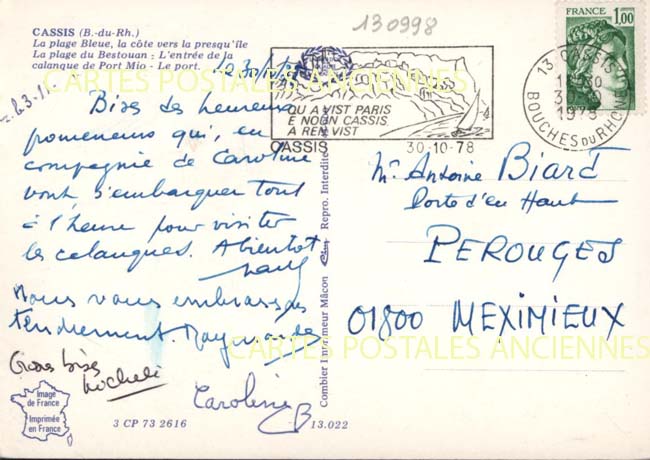 130998
CASSIS (B.-du-Rh.)
La plage Bleue, la côte vers la presqu'île
La plage du Bestouan : L'entrée de la
calanque de Port Mio - Le port.
QU A VIST PARIS
E NOUN CASSIS
A REN VIST
CASSIS 30-10-78
13 CASSIS
1978
BOUCHES DU RHONE
FRANCE
1,00
Bises des heureux
promeneurs qui, en
compagnie de Caroline
vont s'embarquer tout
à l'heure pour visiter
les calanques. A bientôt
Nous vous embrassons
tendrement. Raymonde
Gros bises
Caroline B
Mr Antoine Biard
Porte d'en Haut
PEROUGES
01800 MEXIMIEUX
Combier Imprimeur Mâcon Repro. Interdite
Image
de France
Imprimée
en France
3 CP 73 2616
13.022
CARTES POSTALES ANCIENNES
CARTES POSTALES ANCIENNES